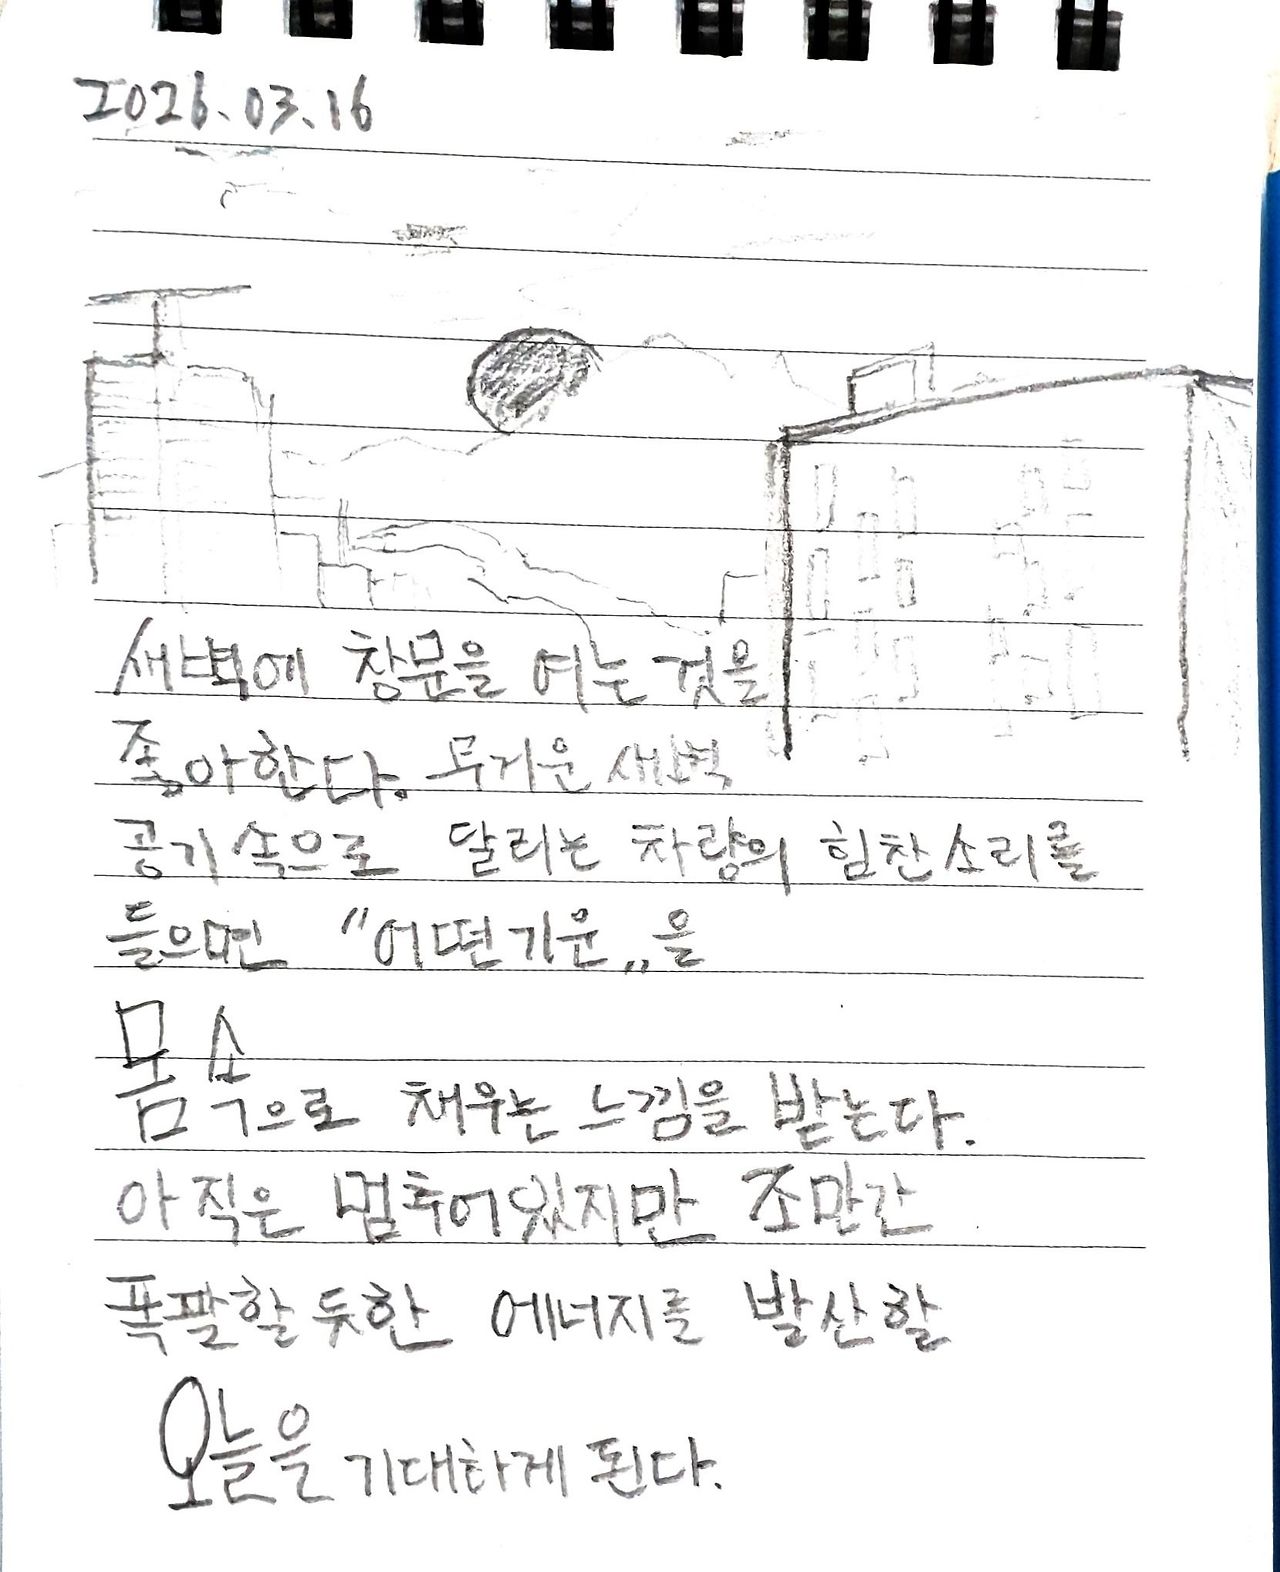 2026.03.16
새벽에 창문을 여는 것을
좋아한다. 무거운 새벽
공기 속으로 달리는 차량의 힘찬 소리를
들으면 "어떤 기운„을
몸속으로 채우는 느낌을 받는다.
아직은 멈추어있지만 조만간
폭팔할 듯한 에너지를 발산할
오늘을 기대하게 된다.